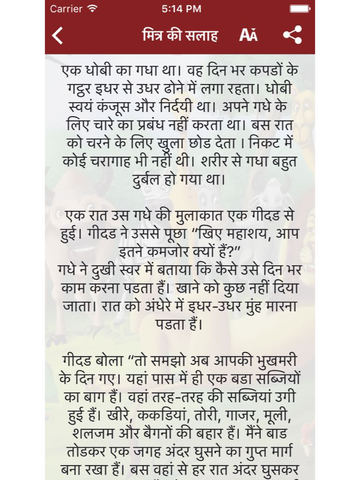 Carrier 5:14 PM
मित्र की सलाह AA
एक धोबी का गधा था। वह दिन भर कपडों के
गट्ठर इधर से उधर ढोने में लगा रहता। धोबी
स्वयं कंजूस और निर्दयी था। अपने गधे के
लिए चारे का प्रबंध नहीं करता था। बस रात
को चरने के लिए खुला छोड देता । निकट में
कोई चरागाह भी नहीं थी। शरीर से गधा बहुत
दुर्बल हो गया था।
एक रात उस गधे की मुलाकात एक गीदड से
हुई। गीदड ने उससे पूछा “खिए महाशय, आप
इतने कमजोर क्यों हैं?”
गधे ने दुखी स्वर में बताया कि कैसे उसे दिन भर
काम करना पडता हैं। खाने को कुछ नहीं दिया
जाता। रात को अंधेरे में इधर-उधर मुंह मारना
पडता हैं।
गीदड बोला “तो समझो अब आपकी भुखमरी
के दिन गए। यहां पास में ही एक बडा सब्जियों
का बाग हैं। वहां तरह-तरह की सब्जियां उगी
हुई हैं। खीरे, ककडियां, तोरी, गाजर, मूली,
शलजम और बैगनों की बहार हैं। मैंने बाड
तोडकर एक जगह अंदर घुसने का गुप्त मार्ग
बना रखा हैं। बस वहां से हर रात अंदर घुसकर